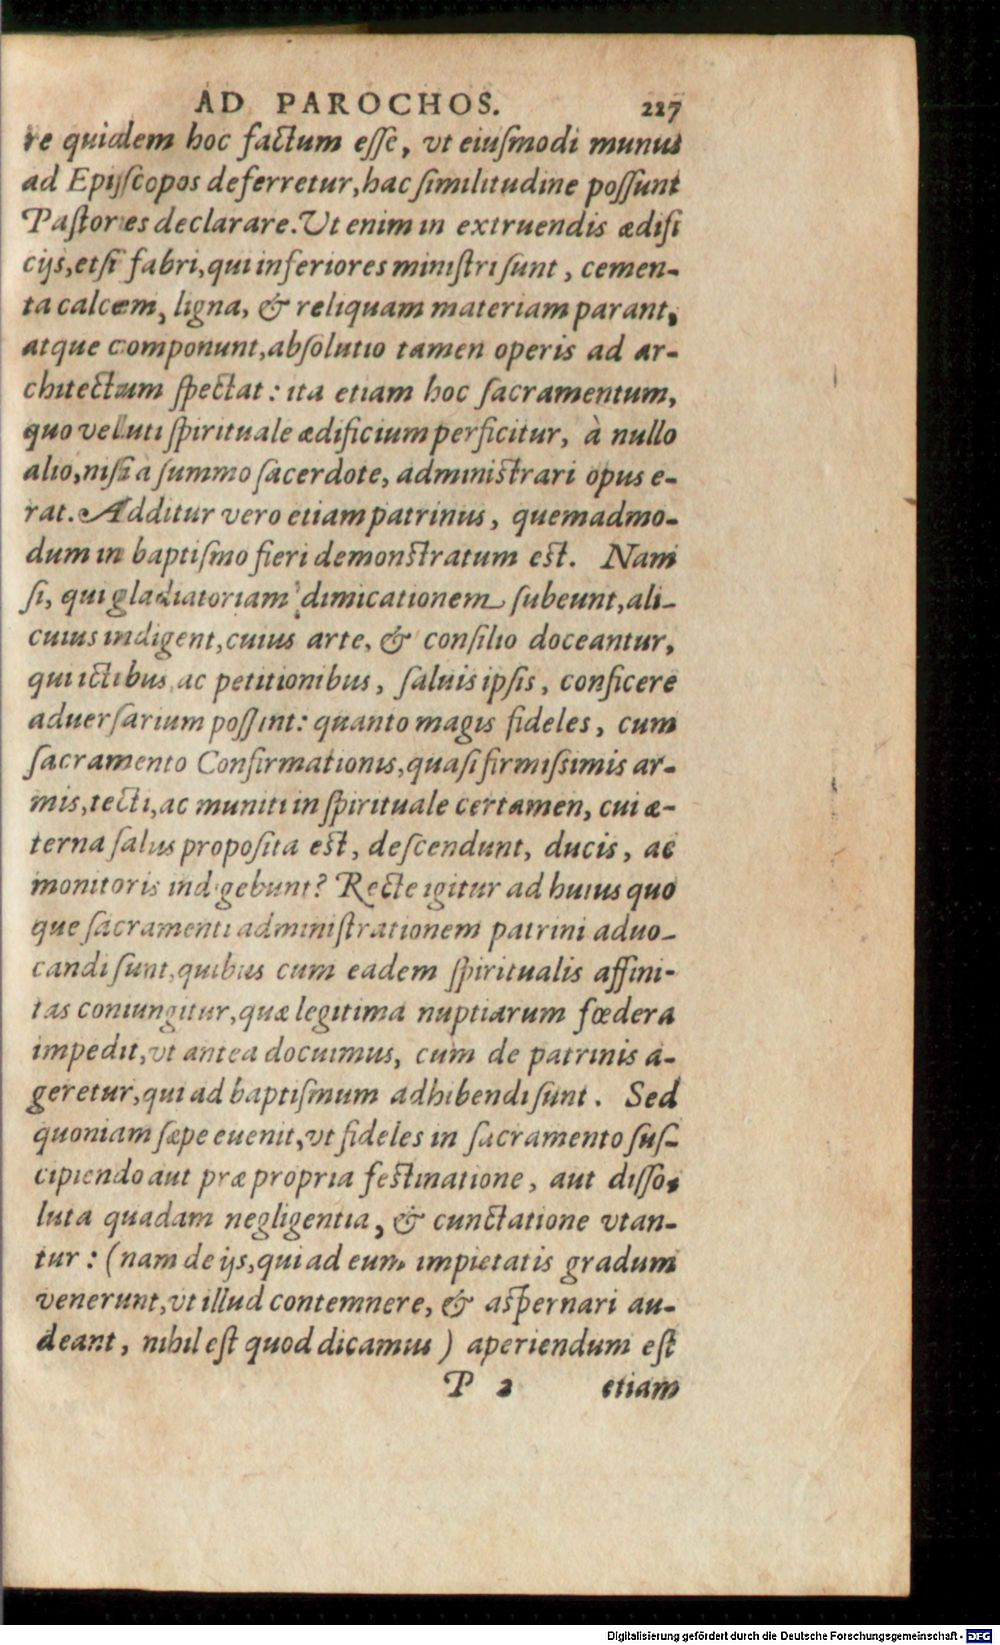 AD PAROCHOS. 227
re quidem hoc factum esse, vt eiusmodi munus
ad Episcopos deferretur, hac similitudine possunt
Pastores declarare. Vt enim in extruendis ædifi
cijs, etsi fabri, qui inferiores ministri sunt, cemen-
ta calcem, ligna, & reliquam materiam parant,
atque componunt, absolutio tamen operis ad ar-
chitectum spectat: ita etiam hoc sacramentum,
quo veluti spirituale ædificium perficitur, à nullo
alio, nisi a summo sacerdote, administrari opus e-
rat. Additur vero etiam patrinus, quemadmo-
dum in baptismo fieri demonstratum est. Nam
si, qui gladiatoriam dimicationem subeunt, ali-
cuius indigent, cuius arte, & consilio doceantur,
qui ictibus ac petitionibus, saluis ipsis, conficere
aduersarium possint: quanto magis fideles, cum
sacramento Confirmationis, quasi firmissimis ar-
mis, tecti, ac muniti in spirituale certamen, cui æ-
terna salus proposita est, descendunt, ducis, ac
monitoris indigebunt? Recte igitur ad huius quo
que sacramenti administrationem patrini aduo-
candi sunt, quibus cum eadem spiritualis affini-
tas coniungitur, quæ legitima nuptiarum fœdera
impedit, vt antea docuimus, cum de patrinis a-
geretur, qui ad baptismum adhibendi sunt. Sed
quoniam sæpe euenit, vt fideles in sacramento sus-
cipiendo aut præpropria festinatione, aut disso-
luta quadam negligentia, & cunctatione vtan-
tur: (nam de ijs, qui ad eum impietatis gradum
venerunt, vt illud contemnere, & aspernari au-
deant, nihil est quod dicamus) aperiendum est
P 2 etiam
Digitalisierung gefördert durch die Deutsche Forschungsgemeinschaft - DFG